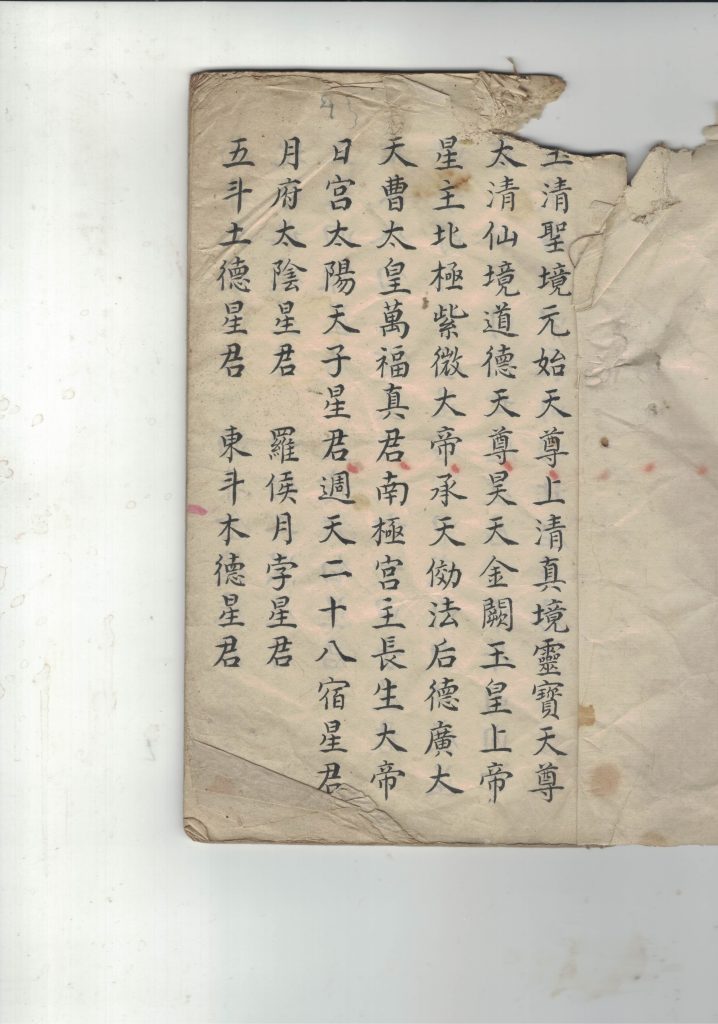 玉清聖境元始天尊上清真境靈寶天尊
太清仙境道德天尊昊天金闕玉皇上帝
星主北極紫微大帝承天効法后德廣大
天曹太皇萬福真君南極宮主長生大帝
日宮太陽天子星君週天二十八宿星君
月府太陰星君 羅侯月孛星君
五斗土德星君 東斗木德星君